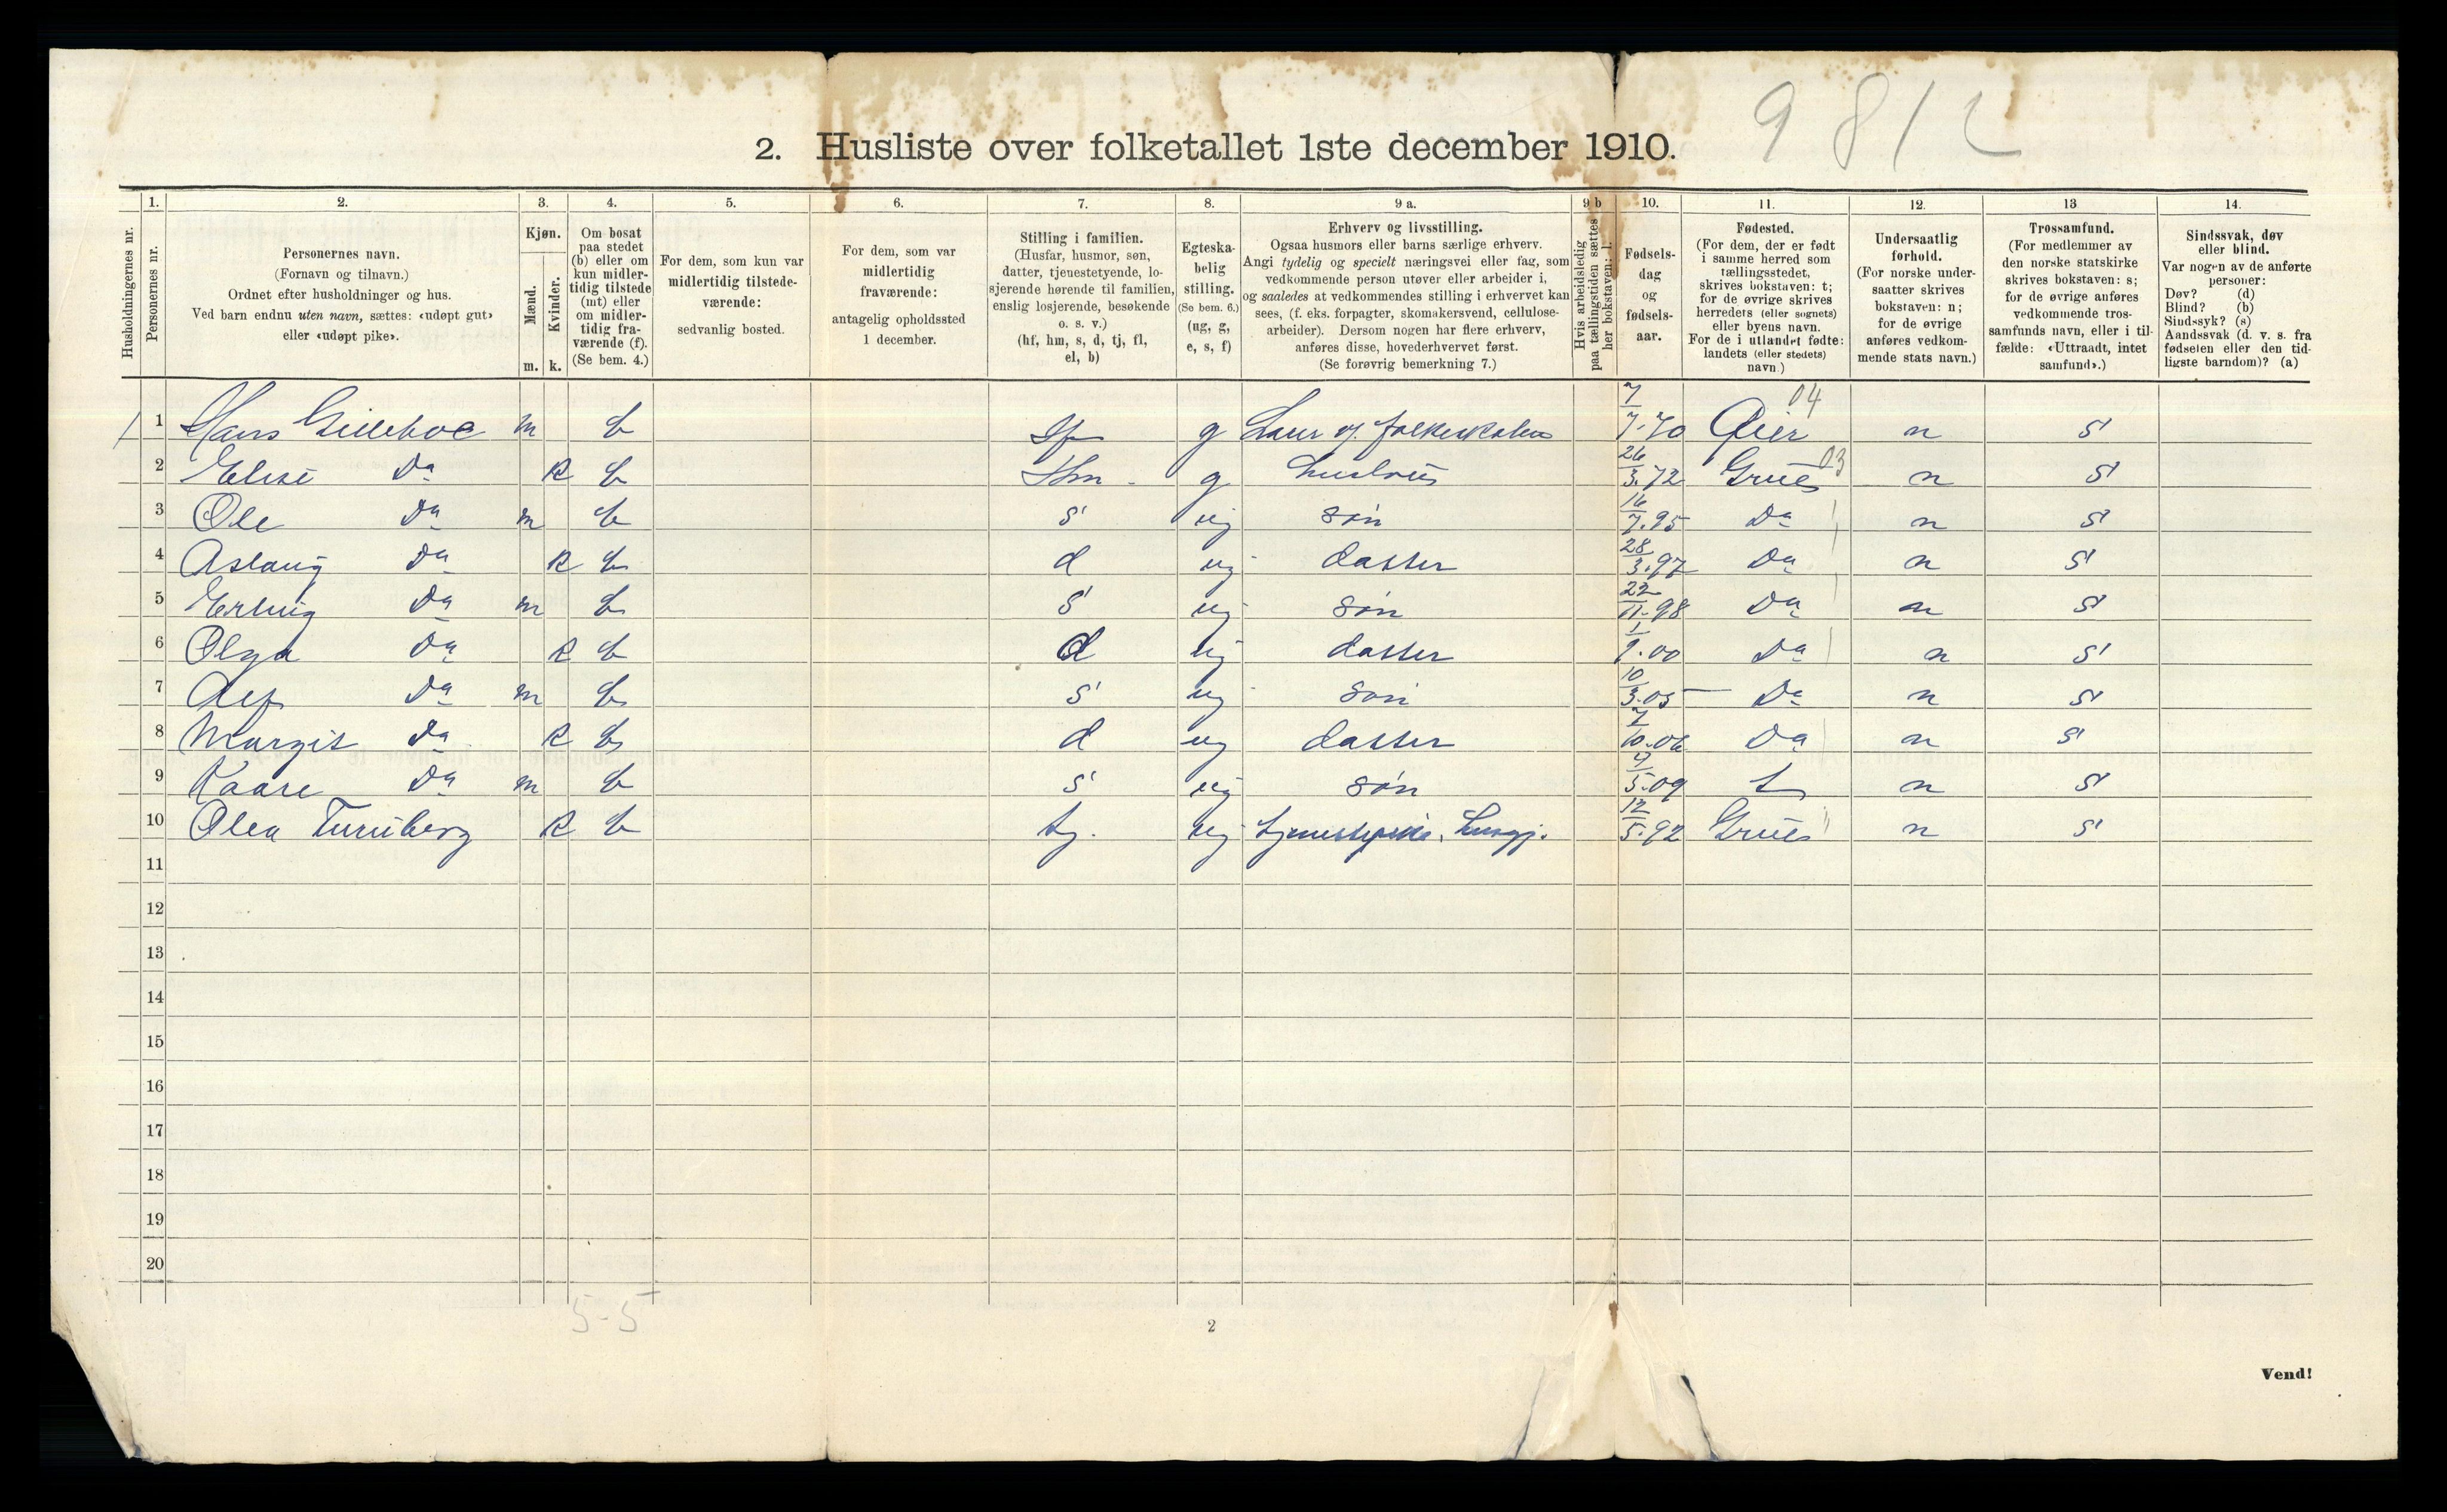 9812
2. Husliste over folketallet 1ste december 1910.
Husholdningernes nr.
1. Personernes nr.
2. Personernes navn. (Fornavn og tilnavn.) Ordnet efter husholdninger og hus. Ved barn endnu uten navn, sættes: «udøpt gut» eller «udøpt pike».
3. Kjøn. Mænd. Kvinder. m. k.
4. Om bosat paa stedet (b) eller om kun midlertidig tilstede (mt) eller om midlertidig fraværende (f). (Se bem. 4.)
5. For dem, som kun var midlertidig tilstedeværende: sedvanlig bosted.
6. For dem, som var midlertidig fraværende: antagelig opholdssted 1 december.
7. Stilling i familien. (Husfar, husmor, søn, datter, tjenestetyende, losjerende hørende til familien, enslig losjerende, besøkende o. s. v.) (hf, hm, s, d, tj, fl, el, b)
8. Egteskabelig stilling. (Se bem. 6.) (ug, g, e, s, f)
9 a. Erhverv og livsstilling. Ogsaa husmors eller barns særlige erhverv. Angi tydelig og specielt næringsvei eller fag, som vedkommende person utøver eller arbeider i, og saaledes at vedkommendes stilling i erhvervet kan sees, (f. eks. forpagter, skomakersvend, cellulose-arbeider). Dersom nogen har flere erhverv, anføres disse, hovederhvervet først. (Se forøvrig bemerkning 7.)
9 b Hvis arbeidsledig paa tællingstiden sættes her bokstaven: l.
10. Fødselsdag og fødselsaar.
11. Fødested. (For dem, der er født i samme herred som tællingsstedet, skrives bokstaven: t; for de øvrige skrives herredets (eller sognets) eller byens navn. For de i utlandet fødte: landets (eller stedets) navn.)
12. Undersaatlig forhold. (For norske undersaatter skrives bokstaven: n; for de øvrige anføres vedkommende stats navn.)
13 Trossamfund. (For medlemmer av den norske statskirke skrives bokstaven: s; for de øvrige anføres vedkommende trossamfunds navn, eller i tilfælde: «Uttraadt, intet samfund».)
14. Sindssvak, døv eller blind. Var nogen av de anførte personer: Døv? (d) Blind? (b) Sindssyk? (s) Aandssvak (d. v. s. fra fødselen eller den tidligste barndom)? (a)
1 1 Hans Gilleboe m b Hf g Lærer v. folkeskolen 7/7.70 Øier 04 n s
2 Elise Do k b Hm. g husbvis 26/3.72 Grue 03 n s
3 Ole Do m b s ug søn 16/7.95 Do n s
4 Aslaug Do k b d ug datter 28/3.97 Do n s
5 Erling Do m b s ug søn 22/11.98 Do n s
6 Olga Do k b d ug datter 1/9.00 Do n s
7 Alf Do m b s ug søn 10/3.05 Do n s
8 Margit Do k b d ug datter 7/10.06 Do n s
9 Kaare Do m b s ug søn 9/5.09 t n s
10 Olea k b tj. ug tjenestepike, husgj. 12/5.92 Grue n s
11
12
13
14
15
16
17
18
19
20
5-5
2
Vend!